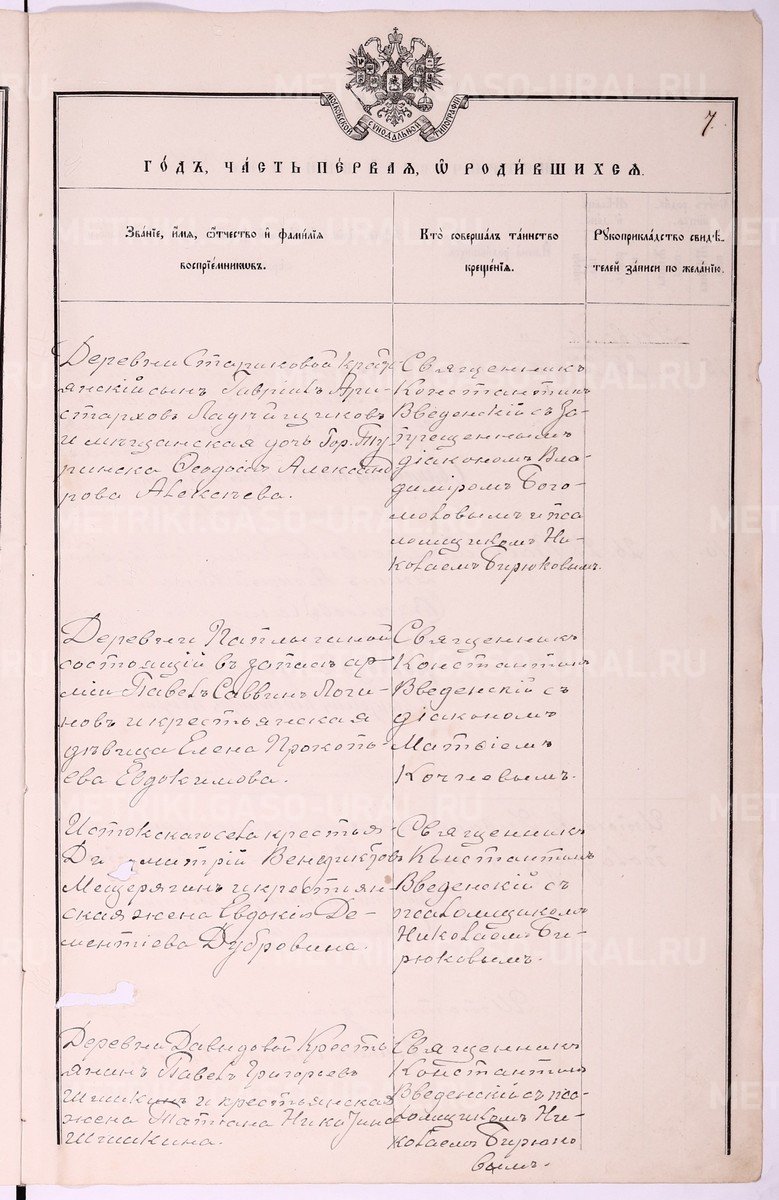 МОСКОВСКОЙ СУНОДАЛЬНОЙ ТИПОГРАФІИ
7.
ГОДЪ, ЧАСТЬ ПЕРВАЯ, Ѡ РОДИВШИХСЯ.
Званіе, имя, ѻтчество и фамилія
воспріемниковъ.
Кто совершалъ таинство
крещенія.
Рукоприкладство свидѣ-
телей записи по желанію.
Деревни Стариковой кресть
янскій сынъ Гавріилъ Ари-
старховъ Ладейщиковъ
и мѣщанская дочь Гор. Ту
ринска Ѳеодосія Александ
рова Алексѣева.
Священникъ
Константинъ
Введенскій съ за-
прещеннымъ
діакономъ Вла-
диміромъ Бого-
моловымъ и пса
ломщикомъ Ни-
колаемъ Бирюковымъ.
Деревни
состоящій въ запасѣ ар-
міи Павелъ Саввинъ Логи
новъ и крестьянская
дѣвица Елена Прокопь-
ева Евдокимова.
Священникъ
Константинъ
Введенскій съ
діакономъ
Матѳіемъ
Кочневымъ.
села крестья-
Димитрій Венедиктовъ
Мещерягинъ и крестьян-
ская жена Евдокія Де-
ментіева Дубровина.
Священникъ
Константинъ
Введенскій съ
псаломщикомъ
Николаемъ Би-
рюковымъ.
Деревни Давыдовой Кресть
янинъ Павелъ Григорьевъ
Шишкинъ и крестьянская
жена Татіана Никитина
Шишкина.
Священникъ
Константинъ
Введенскій съ пса-
ломщикомъ Ни-
колаемъ Бирюко
вымъ.
METRIKI-GASO-URAL.RU